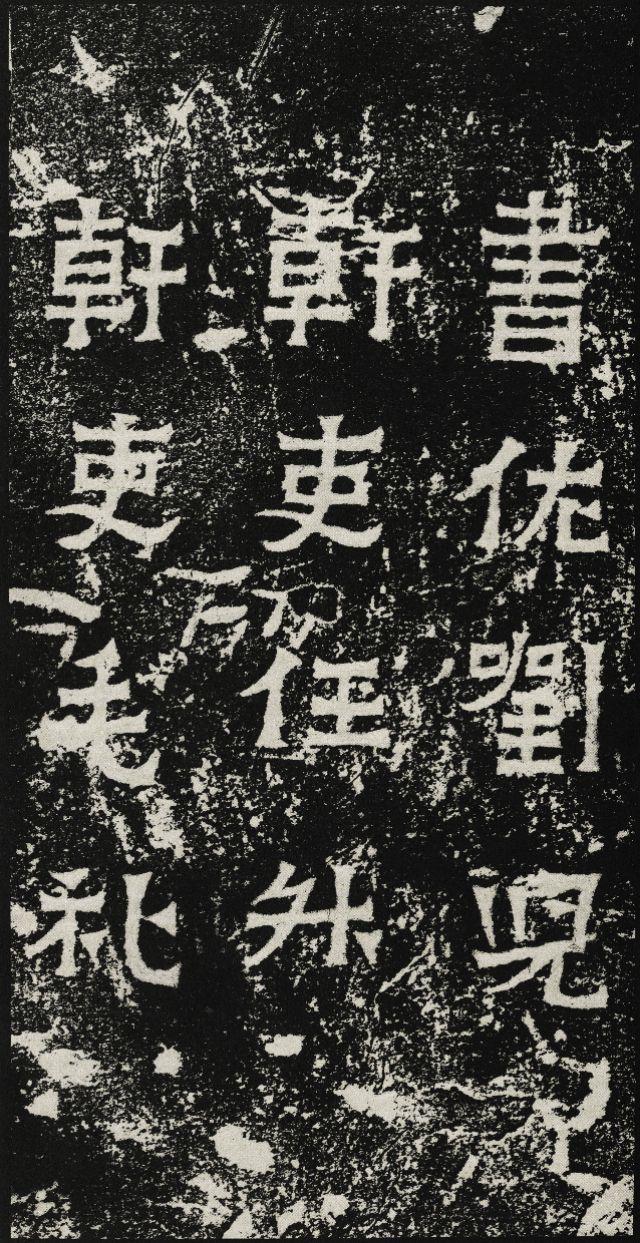 書佐劉兒
幹吏任升
幹吏毛礼